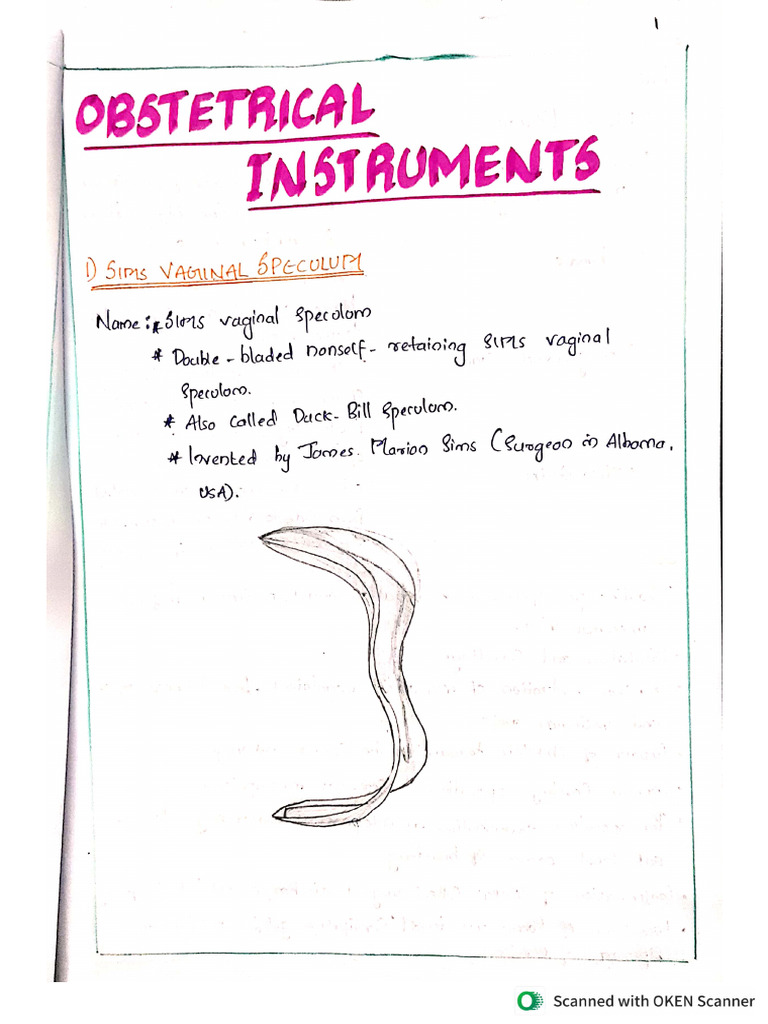 1
OBSTETRICAL
INSTRUMENTS
1) SIMS VAGINAL SPECULUM
Name: * Sims vaginal speculum
* Double-bladed nonself-retaining sims vaginal
speculum.
* Also called Duck-Bill speculum.
* Invented by James. Marion Sims (Surgeon in Albama,
USA).
Scanned with OKEN Scanner